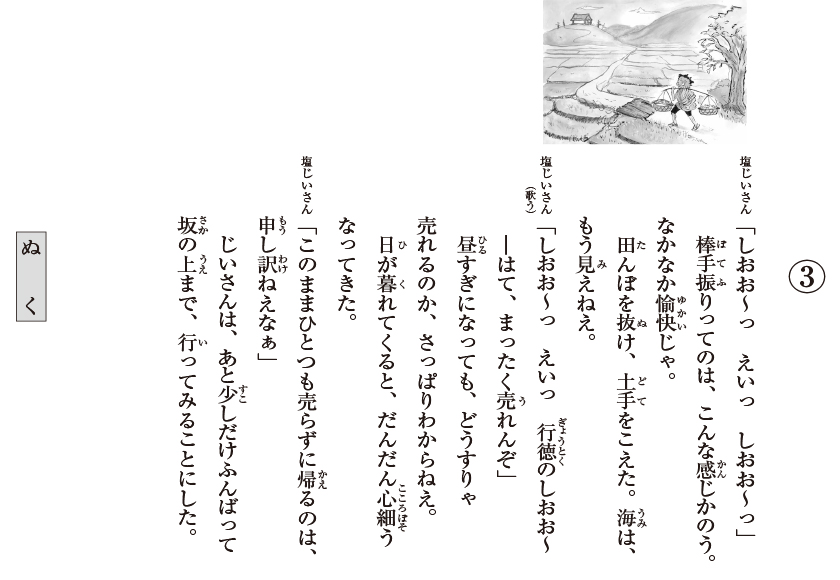 ③
塩じいさん「しおお〜っ　えいっ　しおお〜っ」
棒手振りってのは、こんな感じかのう。
なかなか愉快じゃ。
田んぼを抜け、土手をこえた。海は、
もう見えねえ。
塩じいさん（歌う）「しおお〜っ　えいっ　行徳のしおお〜
―はて、まったく売れんぞ」
昼すぎになっても、どうすりゃ
売れるのか、さっぱりわからねえ。
日が暮れてくると、だんだん心細う
なってきた。
塩じいさん「このままひとつも売らずに帰るのは、
申し訳ねえなぁ」
じいさんは、あと少しだけふんばって
坂の上まで、行ってみることにした。
ぬく